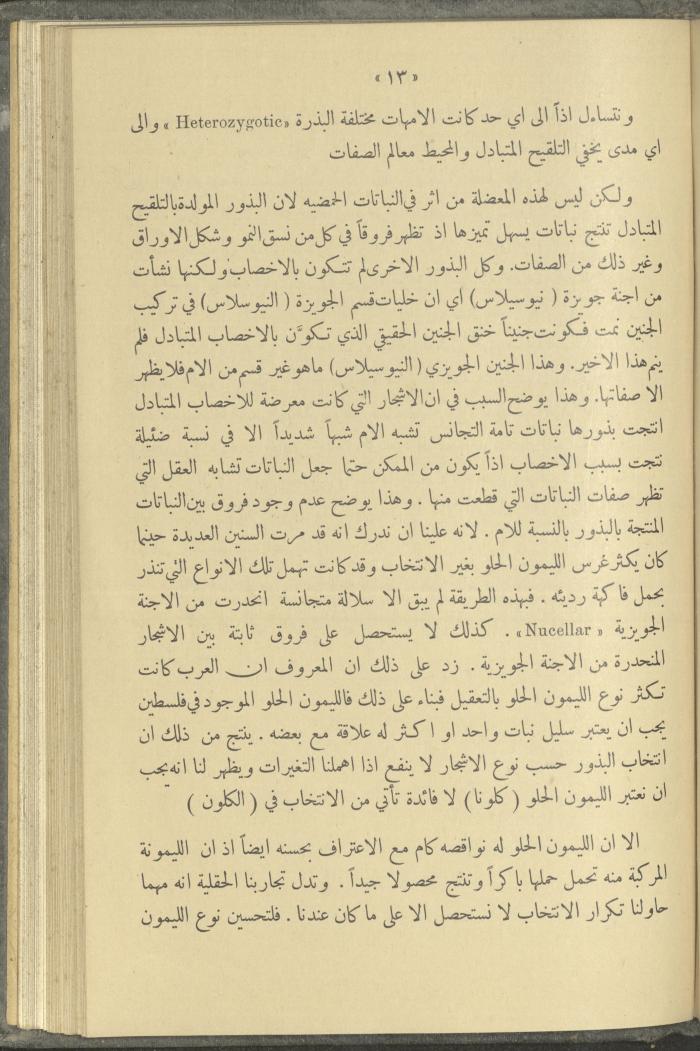 « ١٣ »
ونتساءل اذاً الى اي حد كانت الامهات مختلفة البذرة «Heterozygotic» والى
اي مدى يخفي التلقيح المتبادل والمحيط معالم الصفات
ولكن ليس لهذه المعضلة من اثر في النباتات الحمضيه لان البذور المولدة بالتلقيح
المتبادل تنتج نباتات يسهل تميزها اذ تظهر فروقاً في كل من نسق النمو وشكل الاوراق
وغير ذلك من الصفات. وكل البذور الاخرى لم تتكون بالاخصاب ولكنها نشأت
من اجنة جويزة ( نيوسيلاس) اي ان خليات قسم الجويزة ( النيوسلاس) في تركيب
الجنين نمت فكونت جنيناً خنق الجنين الحقيقي الذي تكوَّن بالاخصاب المتبادل فلم
ينم هذا الاخير. وهذا الجنين الجويزي ( النيوسيلاس) ما هو غير قسم من الام فلا يظهر
الا صفاتها. وهذا يوضح السبب في ان الاشجار التي كانت معرضة للاخصاب المتبادل
انتجت بذورها نباتات تامة التجانس تشبه الام شبهاً شديداً الا في نسبة ضئيلة
نتجت بسبب الاخصاب اذاً يكون من الممكن حتما جعل النباتات تشابه العقل التي
تظهر صفات النباتات التي قطعت منها . وهذا يوضح عدم وجود فروق بين النباتات
المنتجة بالبذور بالنسبة للام . لانه علينا ان ندرك انه قد مرت السنين العديدة حينما
كان يكثر غرس الليمون الحلو بغير الانتخاب وقد كانت تهمل تلك الانواع التي تنذر
بحمل فاكهة رديئه . فبهذه الطريقة لم يبق الا سلالة متجانسة انحدرت من الاجنة
الجويزية « Nucellar » . كذلك لا يستحصل على فروق ثابتة بين الاشجار
المنحدرة من الاجنة الجويزية . زد على ذلك ان المعروف ان العرب كانت
تكثر نوع الليمون الحلو بالتعقيل فبناء على ذلك فالليمون الحلو الموجود في فلسطين
يجب ان يعتبر سليل نبات واحد او اكثر له علاقة مع بعضه . ينتج من ذلك ان
انتخاب البذور حسب نوع الاشجار لا ينفع اذا اهملنا التغيرات ويظهر لنا انه يجب
ان نعتبر الليمون الحلو ( كلونا) لا فائدة تأتي من الانتخاب في ( الكلون )
الا ان الليمون الحلو له نواقصه كام مع الاعتراف بحسنه ايضاً اذ ان الليمونة
المركبة منه تحمل حملها باكراً وتنتج محصولا جيداً . وتدل تجاربنا الحقلية انه مهما
حاولنا تكرار الانتخاب لا نستحصل الا على ما كان عندنا . فلتحسين نوع الليمون